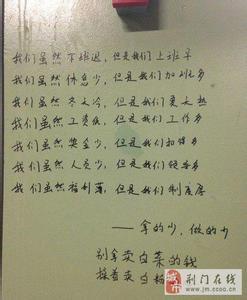 我们虽然下班迟，但是我们上班早
我们虽然休息少，但是我们加班多
我们虽然冬天冷，但是我们夏天热
我们虽然工资低，但是我们工作多
我们虽然奖金少，但是我们扣得多
我们虽然人员少，但是我们领导多
我们虽然福利薄，但是我们制度厚
——拿的少，做的多
别拿卖白菜的钱
操着卖白粉的
城市
荆门在线
www.jm.ccoo.cn